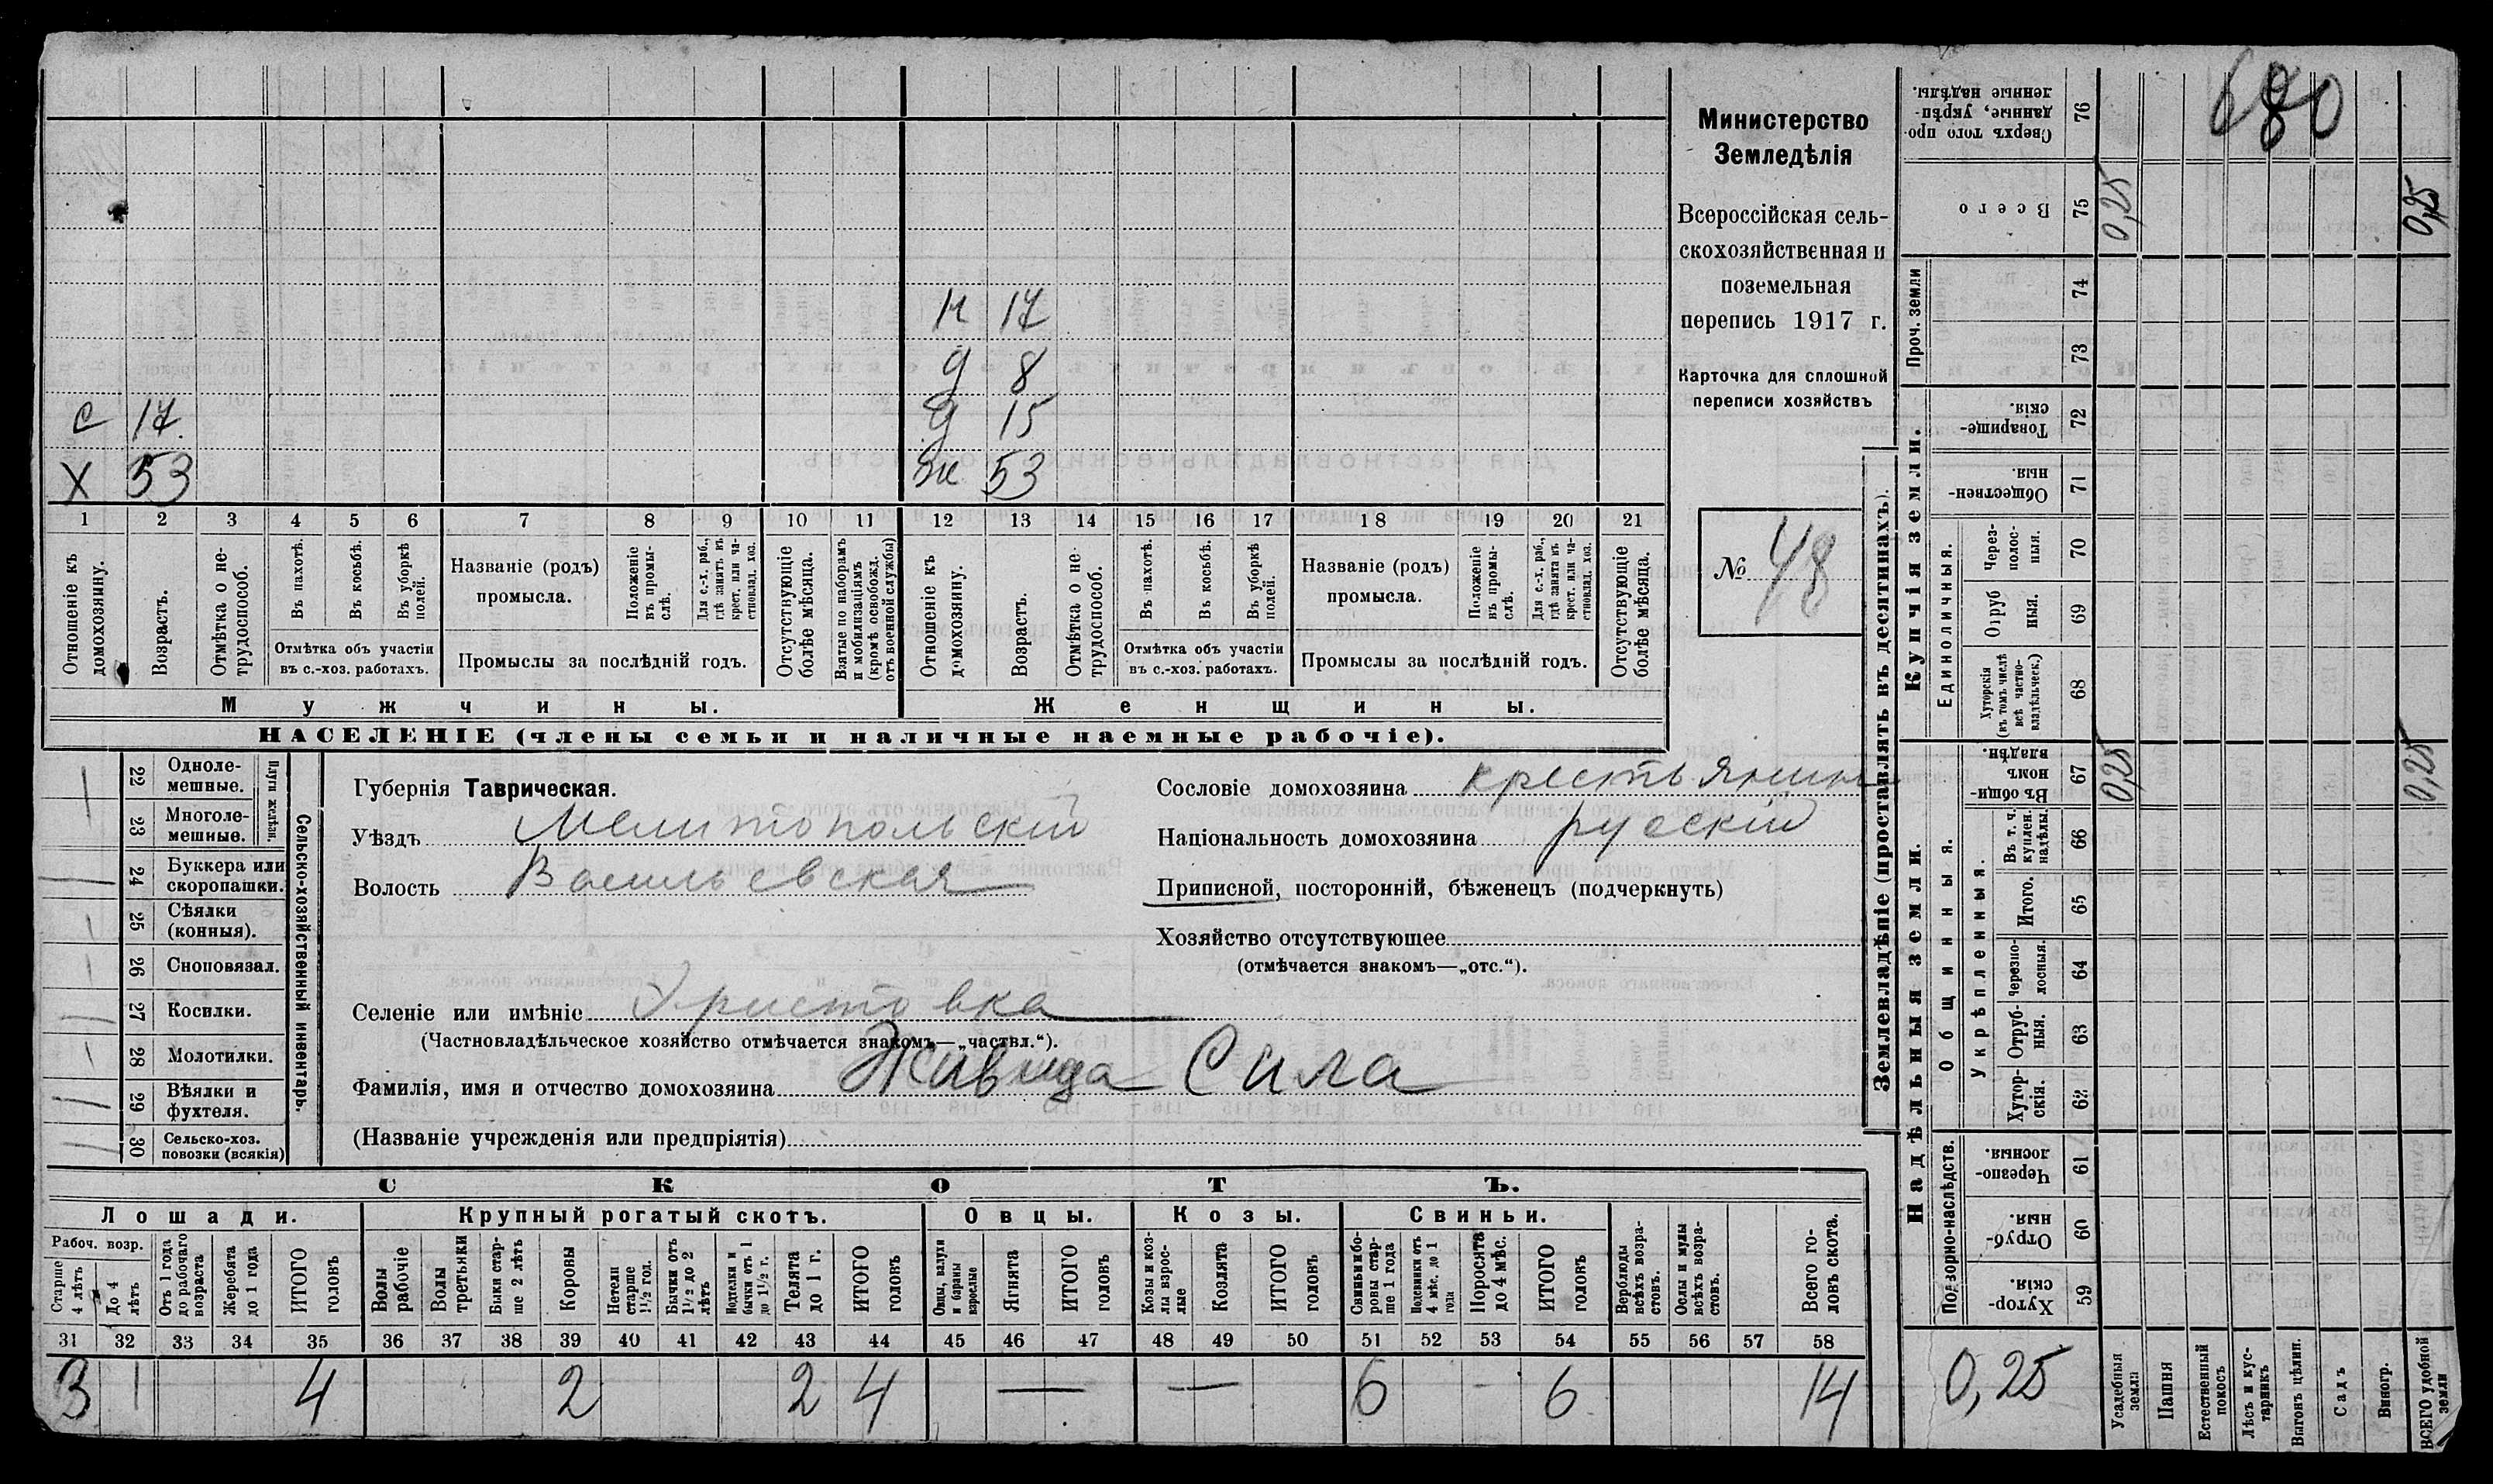 н 17
д 8
с 17 д 15
х 53 ж 53
1 2 3 4 5 6 7 8 9 10 11 12 13 14 15 16 17 18 19 20 21
Отношеніе къ домохозяину.
Возрастъ.
Отмѣтка о не-трудоспособ.
Въ пахотѣ.
Въ косьбѣ.
Въ уборкѣ полей.
Отмѣтка объ участіи
въ с.-хоз. работахъ.
Названіе (родъ)
промысла.
Положеніе въ промы-слѣ.
Для с.-х. раб., гдѣ занятъ въ крест. или ча-стновлад. хоз.
Промыслы за послѣдній годъ.
Отсутствующіе болѣе мѣсяца.
Взятые по наборамъ и мобилизаціямъ (кромѣ освобожд. отъ военной службы)
Отношеніе къ домохозяину.
Возрастъ.
Отмѣтка о не-трудоспособ.
Въ пахотѣ.
Въ косьбѣ.
Въ уборкѣ полей.
Отмѣтка объ участіи
въ с.-хоз. работахъ.
Названіе (родъ)
промысла.
Положеніе въ промы-слѣ.
Для с.-х. раб., гдѣ занята въ крест. или ча-стновлад. хоз.
Промыслы за послѣдній годъ.
Отсутствующіе болѣе мѣсяца.
Мужчины. Женщины.
НАСЕЛЕНІЕ (члены семьи и наличные наемные рабочіе).
Министерство
Земледѣлія
Всероссійская сель-
скохозяйственная и
поземельная
перепись 1917 г.
Карточка для сплошной
переписи хозяйствъ
№ 48
Сельско-хозяйственный инвентарь.
Плуги желѣзн.
22 Одноле-мешные.
23 Многоле-мешные.
24 Буккера или скоропашки.
25 Сѣялки (конныя).
26 Сноповязал.
27 Косилки.
28 Молотилки.
29 Вѣялки и фухтеля.
30 Сельско-хоз. повозки (всякія)
Губернія Таврическая.
Уѣздъ Мелитопольскій
Волость Васильевская
Сословіе домохозяина крестьянин
Національность домохозяина русскій
Приписной, посторонній, бѣженецъ (подчеркнуть)
Хозяйство отсутствующее
(отмѣчается знакомъ—„отс.“).
Селеніе или имѣніе Христовка
(Частновладѣльческое хозяйство отмѣчается знакомъ—„частвл.“).
Фамилія, имя и отчество домохозяина Живида Сила
(Названіе учрежденія или предпріятія)
СКОТЪ.
Лошади. Крупный рогатый скотъ. Овцы. Козы. Свиньи.
Рабоч. возр.
Старше 4 лѣтъ
До 4 лѣтъ
Отъ 1 года до рабочаго возраста
Жеребята до 1 года
ИТОГО головъ
Волы рабочіе
Волы третьяки
Быки стар-ше 2 лѣтъ
Коровы
Нетели старше 1½ год.
Бычки отъ 1½ до 2 лѣтъ
Подтелки и бычки отъ 1 до 1½ г.
Телята до 1 г.
ИТОГО головъ
Овцы, валухи и бараны взрослые
Ягнята
ИТОГО головъ
Козы и коз-лы взрос-лые
Козлята
ИТОГО головъ
Свиньи и бо-ровы стар-ше 1 года
Подсвинки отъ 4 мѣс. до 1 года
Поросята до 4 мѣс.
ИТОГО головъ
Верблюды всѣхъ возра-стовъ.
Ослы и мулы всѣхъ возра-стовъ.
Всего го-ловъ скота.
31 32 33 34 35 36 37 38 39 40 41 42 43 44 45 46 47 48 49 50 51 52 53 54 55 56 57 58
3 1 4 2 2 4 — — 6 - 6 14
680
Землевладѣніе (проставлять въ десятинахъ).
Купчія земли.
Сверхъ того про-данные, укрѣп-ленные надѣлы. 76
Всего 75 0,25 0,25
Проч. земли 74
73
Товарище-скія. 72
Обществен-ныя. 71
Единоличныя.
Через-полос-ныя. 70
Отруб ныя. 69
Хуторскія (въ томъ числѣ всѣ частно-владѣльческ.) 68
Надѣльныя земли.
Общинныя.
Въ общин-номъ владѣн. 67 0,25 0,25
Укрѣпленныя.
Въ т. ч. куплен. надѣлы. 66
Итого. 65
Черезпо-лосныя. 64
Отруб-ныя. 63
Хутор-скія. 62
Подворно-наслѣдств.
Черезпо-лосныя. 61
Отруб-ныя. 60
Хутор-скія. 59
0,25
Усадебная земля
Пашня
Естественный покосъ
Лѣсъ и кус-тарникъ
Выгонъ цѣлин.
Садъ
Виногр.
ВСЕГО удобной земли